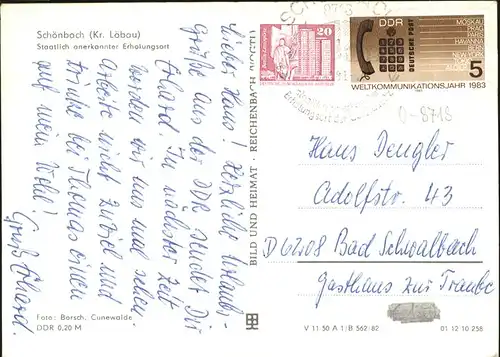 Schönbach (Kr. Löbau)
Staatlich anerkannter Erholungsort
Lieber Hans! Herzliche Urlaubs-
grüße aus der DDR sendet Dir
Erhard. In nächster Zeit
werden wir uns mal sehen.
Arbeite nicht zuviel und
trinke bei Thomas einen
auf mein Wohl!
Gruß Erhard.
Foto: Borsch, Cunewalde
DDR 0,20 M
BILD UND HEIMAT · REICHENBACH
V 11 50 A 1/B 562-82
01 12 10 258
20
DDR
DEUTSCHE POST
MOSKAU
5
WELTKOMMUNIKATIONSJAHR 1983
0-8718
Hans Dengler
Adolfstr. 43
D 6208 Bad Schwalbach
Gasthaus zur Traube